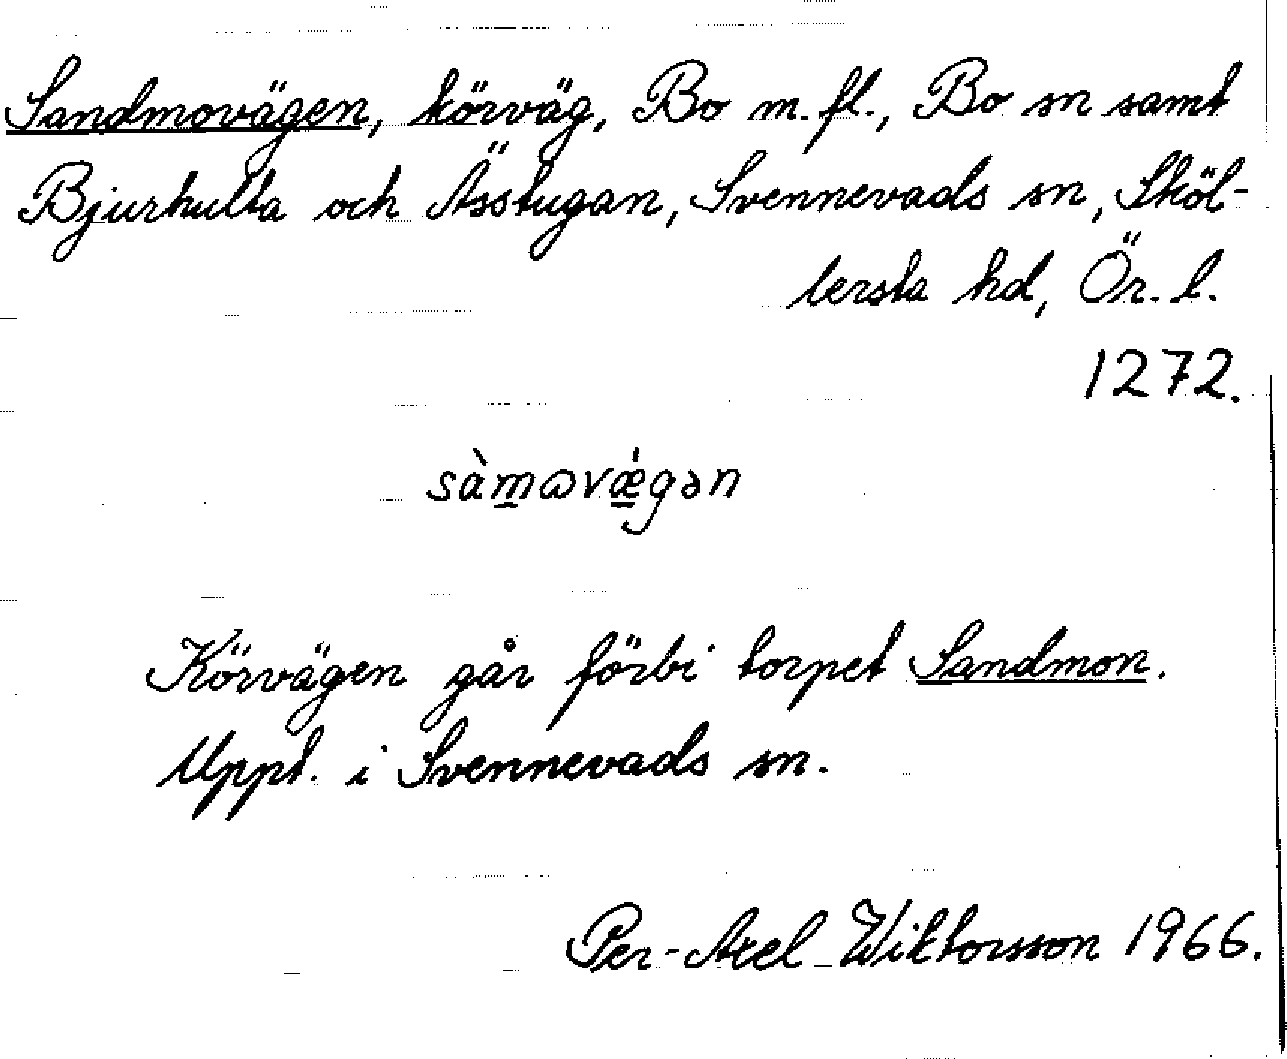 Sandmovägen, körväg, Bo m. fl., Bo sn samt
Bjurhulta och Ässtugan, Svennevads sn, Sköl-
lersta hd, Ör. l.
1272.
sàm̱ɷvǽ̱gən
Körvägen går förbi torpet Sandmon.
Uppt. i Svennevads sn.
Per-Axel Wiktorsson 1966.